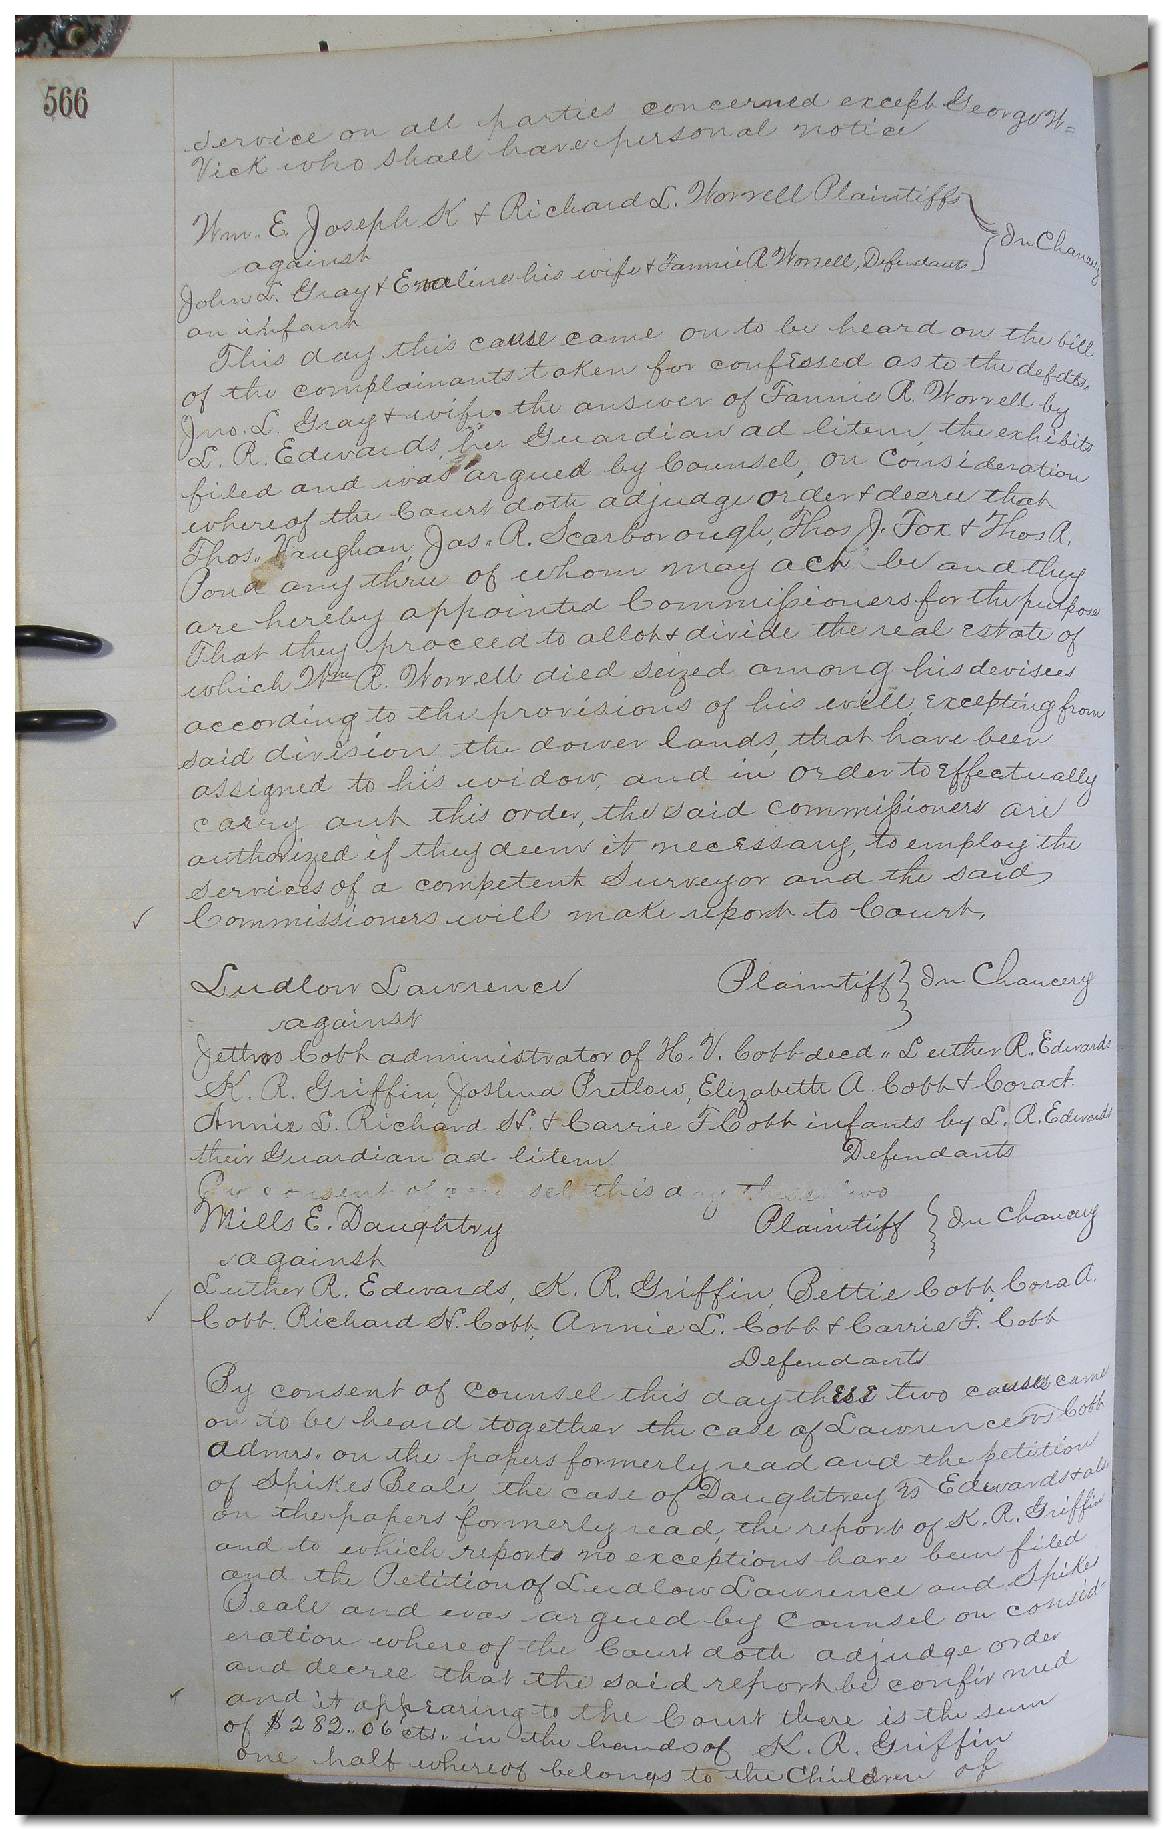 566
service on all parties concerned except George W=
Vick who shall have personal notice
Wm. E. Joseph K & Richard L. Worrell Plaintiffs
against
In Chancery
John L. Gray & Emeline his wife & Fannie R Worrell, Defendants
an infant
This day this cause came on to be heard on the bill
of the complainants taken for confessed as to the defdts.
Jno. L. Gray & wife. the answer of Fannie R. Worrell by
L. R. Edwards, her Guardian ad litem, the exhibits
filed and was argued by Counsel, on Consideration
whereof the Court doth adjudge order & decree that
Thos. Vaughan, Jas. R. Scarborough, Thos J. Fox & Thos R.
Pond any three of whom may act be and they
are hereby appointed Commissioners for the purpose
That they proceed to allot & divide the real estate of
which Wm R. Worrell died seized among his devisees
according to the provisions of his will excepting from
said division the dower lands, that have been
assigned to his widow, and in order to effectually
carry out this order, the said commissioners are
authorized if they deem it necessary, to employ the
services of a competent Surveyor and the said
Commissioners will make report to Court.
Ludlow Lawrence Plaintiff } In Chancery
against
Jethro Cobb administrator of H. V. Cobb deed " Luther R. Edwards
K. R. Griffin, Joshua Pretlow, Elizabeth A. Cobb & Cora A
Annie L. Richard H. & Carrie F Cobb infants by L. R. Edwards
their Guardian ad litem Defendants
By consent of counsel this day these two
Mills E. Daughtry Plaintiff } In Chancery
against
Luther R. Edwards, K. R. Griffin, Bettie Cobb, Cora A.
Cobb, Richard H. Cobb, Annie L. Cobb & Carrie F. Cobb
Defendants
By consent of counsel this day these two causes came
on to be heard together the case of Lawrence vs Cobb
admrs. on the papers formerly read and the petition
of Spikes Beale, the case of Daughtrey vs Edwards & als
on the papers formerly read, the report of K. R. Griffin
and to which reports no exceptions have been filed
and the Petition of Ludlow Lawrence and Spikes
Beale and was argued by Counsel on consid-
eration whereof the Court doth adjudge order
and decree that the said report be confirmed
and it appearing to the Court there is the sum
of $282.. 06 cts. in the hands of K. R. Griffin
one half whereof belongs to the Children of